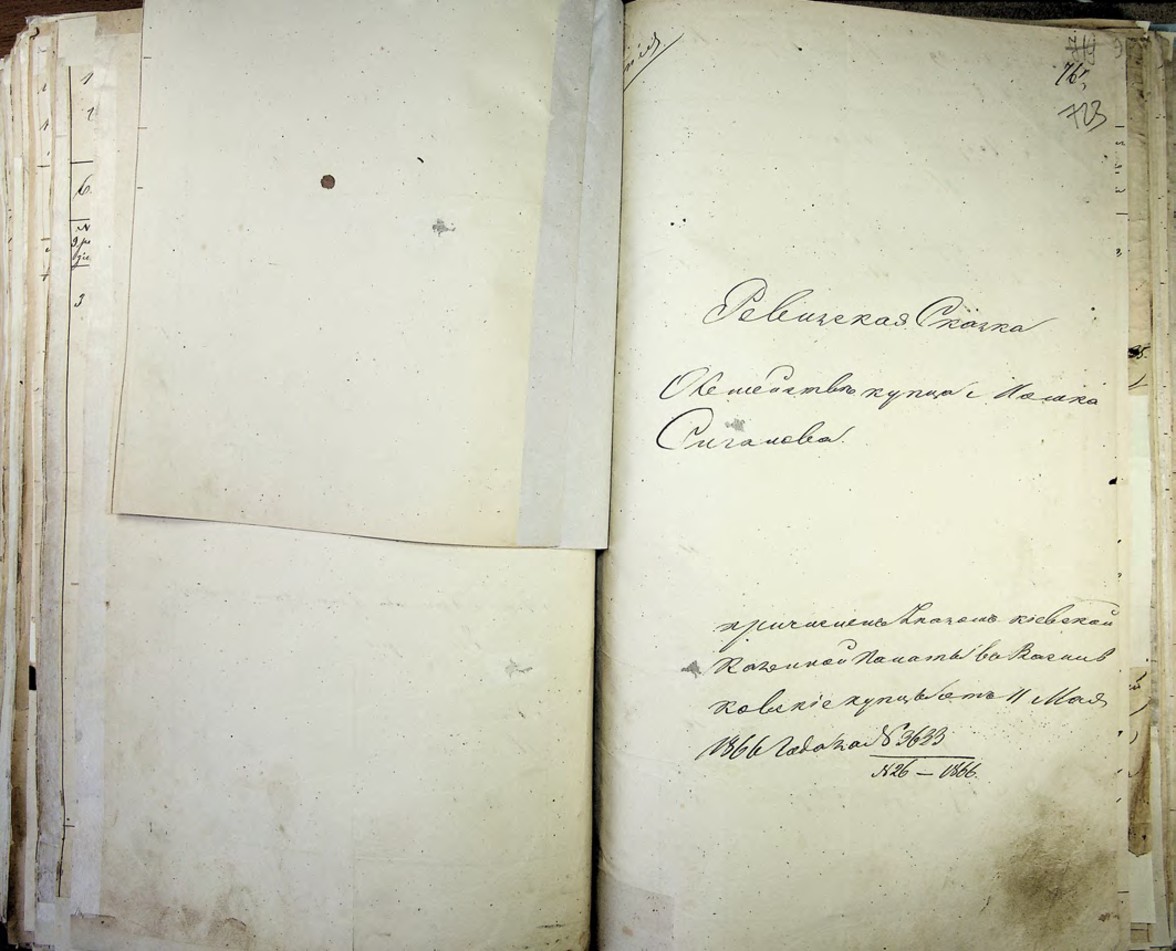 76
723
Ревизская Сказка
О семействе купца Мошка
Сигалова.
причислен Указом кіевской
Казенной Палаты въ Васильковскіе
купцы отъ 11 Мая
1866 года за № 3633
№ 26 – 1866.
6
3